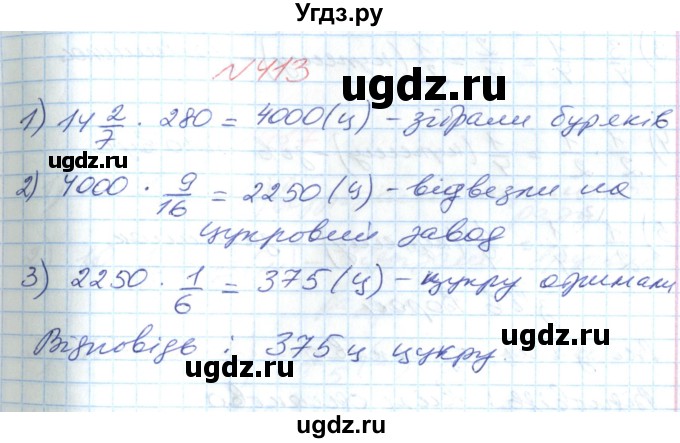 Угдз.ру
№413
ugdz.ru
1) 14 2/7 · 280 = 4000 (ц) - зібрали буряків
ugdz.ru
2) 4000 · 9/16 = 2250 (ц) - відвезли на
цукровий завод
ugdz.ru
3) 2250 · 1/6 = 375 (ц) - цукру отримали
Відповідь: 375 ц цукру.
ugdz.ru
ugdz.ru
ugdz.ru